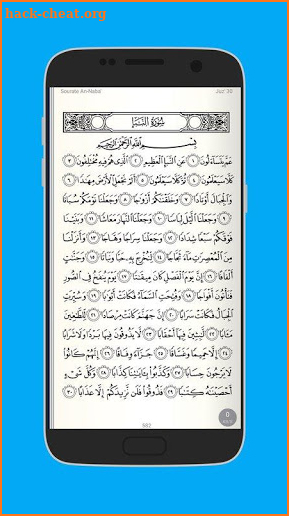 hack-cheat.org
Sourate An-Naba' Juz' 30
سُورَةُ النَّبَإِ
بِسْمِ ٱللَّهِ ٱلرَّحْمَٰنِ ٱلرَّحِيمِ
عَمَّ يَتَسَآءَلُونَ ١ عَنِ ٱلنَّبَإِ ٱلْعَظِيمِ ٢ ٱلَّذِى هُمْ فِيهِ مُخْتَلِفُونَ ٣
كَلَّا سَيَعْلَمُونَ ٤ ثُمَّ كَلَّا سَيَعْلَمُونَ ٥ أَلَمْ نَجْعَلِ ٱلْأَرْضَ مِهَٰدًا ٦
وَٱلْجِبَالَ أَوْتَادًا ٧ وَخَلَقْنَٰكُمْ أَزْوَٰجًا ٨ وَجَعَلْنَا نَوْمَكُمْ سُبَاتًا
٩ وَجَعَلْنَا ٱلَّيْلَ لِبَاسًا ١٠ وَجَعَلْنَا ٱلنَّهَارَ مَعَاشًا ١١ وَبَنَيْنَا
فَوْقَكُمْ سَبْعًا شِدَادًا ١٢ وَجَعَلْنَا سِرَاجًا وَهَّاجًا ١٣ وَأَنزَلْنَا
مِنَ ٱلْمُعْصِرَٰتِ مَآءً ثَجَّاجًا ١٤ لِّنُخْرِجَ بِهِۦ حَبًّا وَنَبَاتًا ١٥ وَجَنَّٰتٍ
أَلْفَافًا ١٦ إِنَّ يَوْمَ ٱلْفَصْلِ كَانَ مِيقَٰتًا ١٧ يَوْمَ يُنفَخُ فِى ٱلصُّورِ
فَتَأْتُونَ أَفْوَاجًا ١٨ وَفُتِحَتِ ٱلسَّمَآءُ فَكَانَتْ أَبْوَٰبًا ١٩ وَسُيِّرَتِ
ٱلْجِبَالُ فَكَانَتْ سَرَابًا ٢٠ إِنَّ جَهَنَّمَ كَانَتْ مِرْصَادًا ٢١ لِّلطَّٰغِينَ
مَـَٔابًا ٢٢ لَّٰبِثِينَ فِيهَآ أَحْقَابًا ٢٣ لَّا يَذُوقُونَ فِيهَا بَرْدًا وَلَا شَرَابًا
٢٤ إِلَّا حَمِيمًا وَغَسَّاقًا ٢٥ جَزَآءً وِفَاقًا ٢٦ إِنَّهُمْ كَانُوا۟
لَا يَرْجُونَ حِسَابًا ٢٧ وَكَذَّبُوا۟ بِـَٔايَٰتِنَا كِذَّابًا ٢٨ وَكُلَّ شَىْءٍ
أَحْصَيْنَٰهُ كِتَٰبًا ٢٩ فَذُوقُوا۟ فَلَن نَّزِيدَكُمْ إِلَّا عَذَابًا ٣٠
0
582
hack-cheat.org